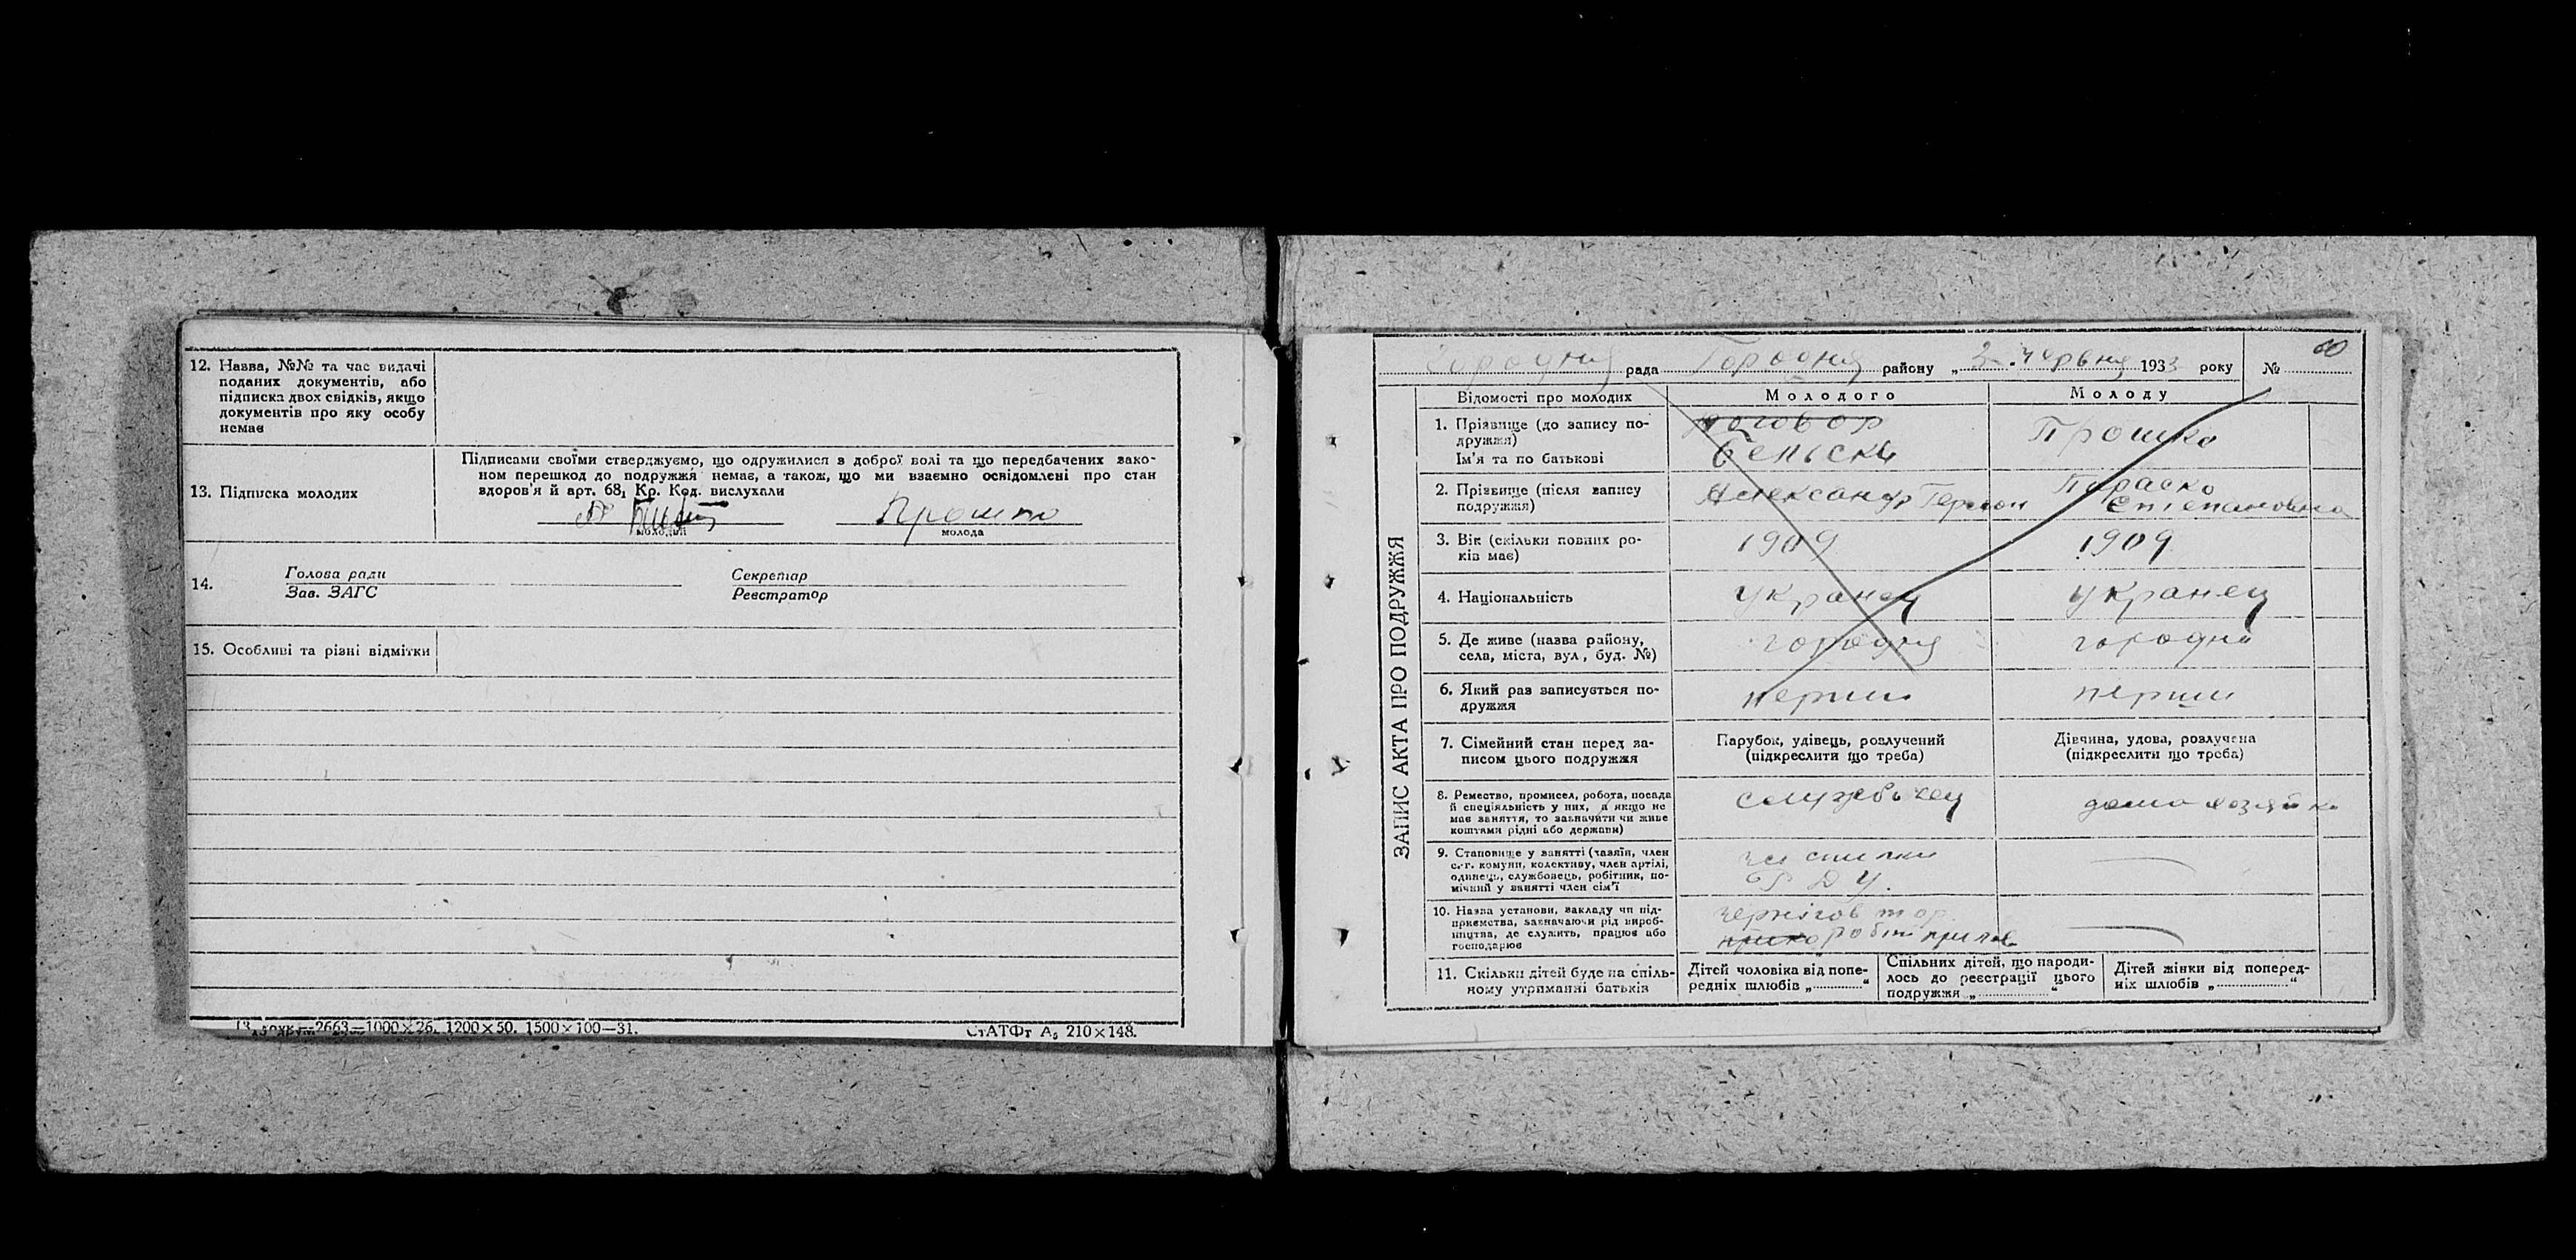 12. Назва, №№ та час видачі
поданих документів, або
підписка двох свідків, якщо
документів про яку особу
немає
13. Підписка молодих
Підписами своїми стверджуємо, що одружилися з доброї волі та що передбачених зако-
ном перешкод до подружжя немає, а також, що ми взаємно освідомлені про стан
здоров'я й арт. 68₁ Кр. Код. вислухали
Прошко
молодий
молода
14.
Голова ради
Зав. ЗАГС
Секретар
Реєстратор
15. Особливі та різні відмітки
2663—1000×26. 1200×50. 1500×100—31.
СтАТФт А₅ 210×148.
ЗАПИС АКТА ПРО ПОДРУЖЖЯ
Городня рада Городня району „ 3 „ червня 1933 року № 60
Відомості про молодих
Молодого
Молоду
1. Прізвище (до запису по-
дружжя)
Ім'я та по батькові
Бельски
Прошко
2. Прізвище (після запису
подружжя)
Александр
Параско
Степановна
3. Вік (скільки повних ро-
ків має)
1909
1909
4. Національність
укранец
укранец
5. Де живе (назва району,
села, міста, вул., буд. №)
городня
городня
6. Який раз записується по-
дружжя
перши
перши
7. Сімейний стан перед за-
писом цього подружжя
Парубок, удівець, розлучений
(підкреслити що треба)
Дівчина, удова, розлучена
(підкреслити що треба)
8. Ремество, промисел, робота, посада
й спеціяльність у них, а якщо не
має заняття, то зазначити чи живе
коштами рідні або держави)
службовец
домо хозяйка
9. Становище у занятті (хазяїн, член
с.-г. комуни, колективу, член артілі,
одинець, службовець, робітник, по-
мічний у занятті член сім'ї
10. Назва установи, закладу чи під-
приємства, зазначаючи рід вироб-
ництва, де служить, працює або
господарює
11. Скільки дітей буде на спіль-
ному утриманні батьків
Дітей чоловіка від попе-
редніх шлюбів „ “
Спільних дітей, що народи-
лось до реєстрації цього
подружжя „ “
Дітей жінки від поперед-
ніх шлюбів „ “